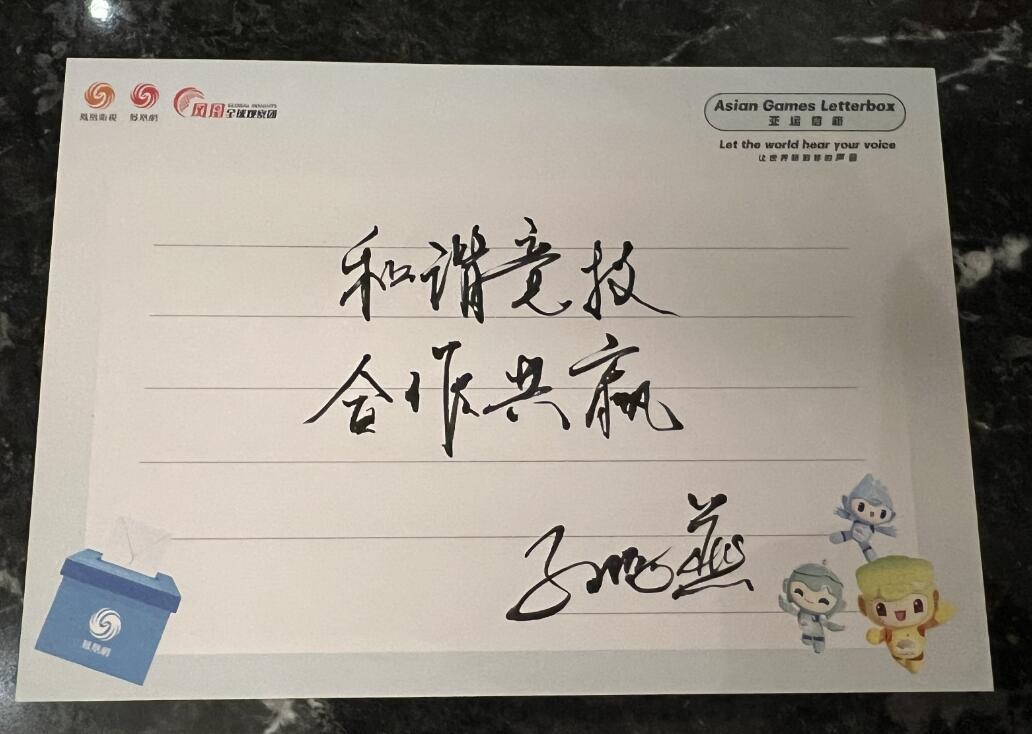 鳳凰衛視 鳳凰網 凤凰 GLOBAL INSIGHTS 全球观察团
Asian Games Letterbox
亚运信箱
Let the world hear your voice
让世界听到你的声音
和谐竞技
合作共赢
鳳凰網